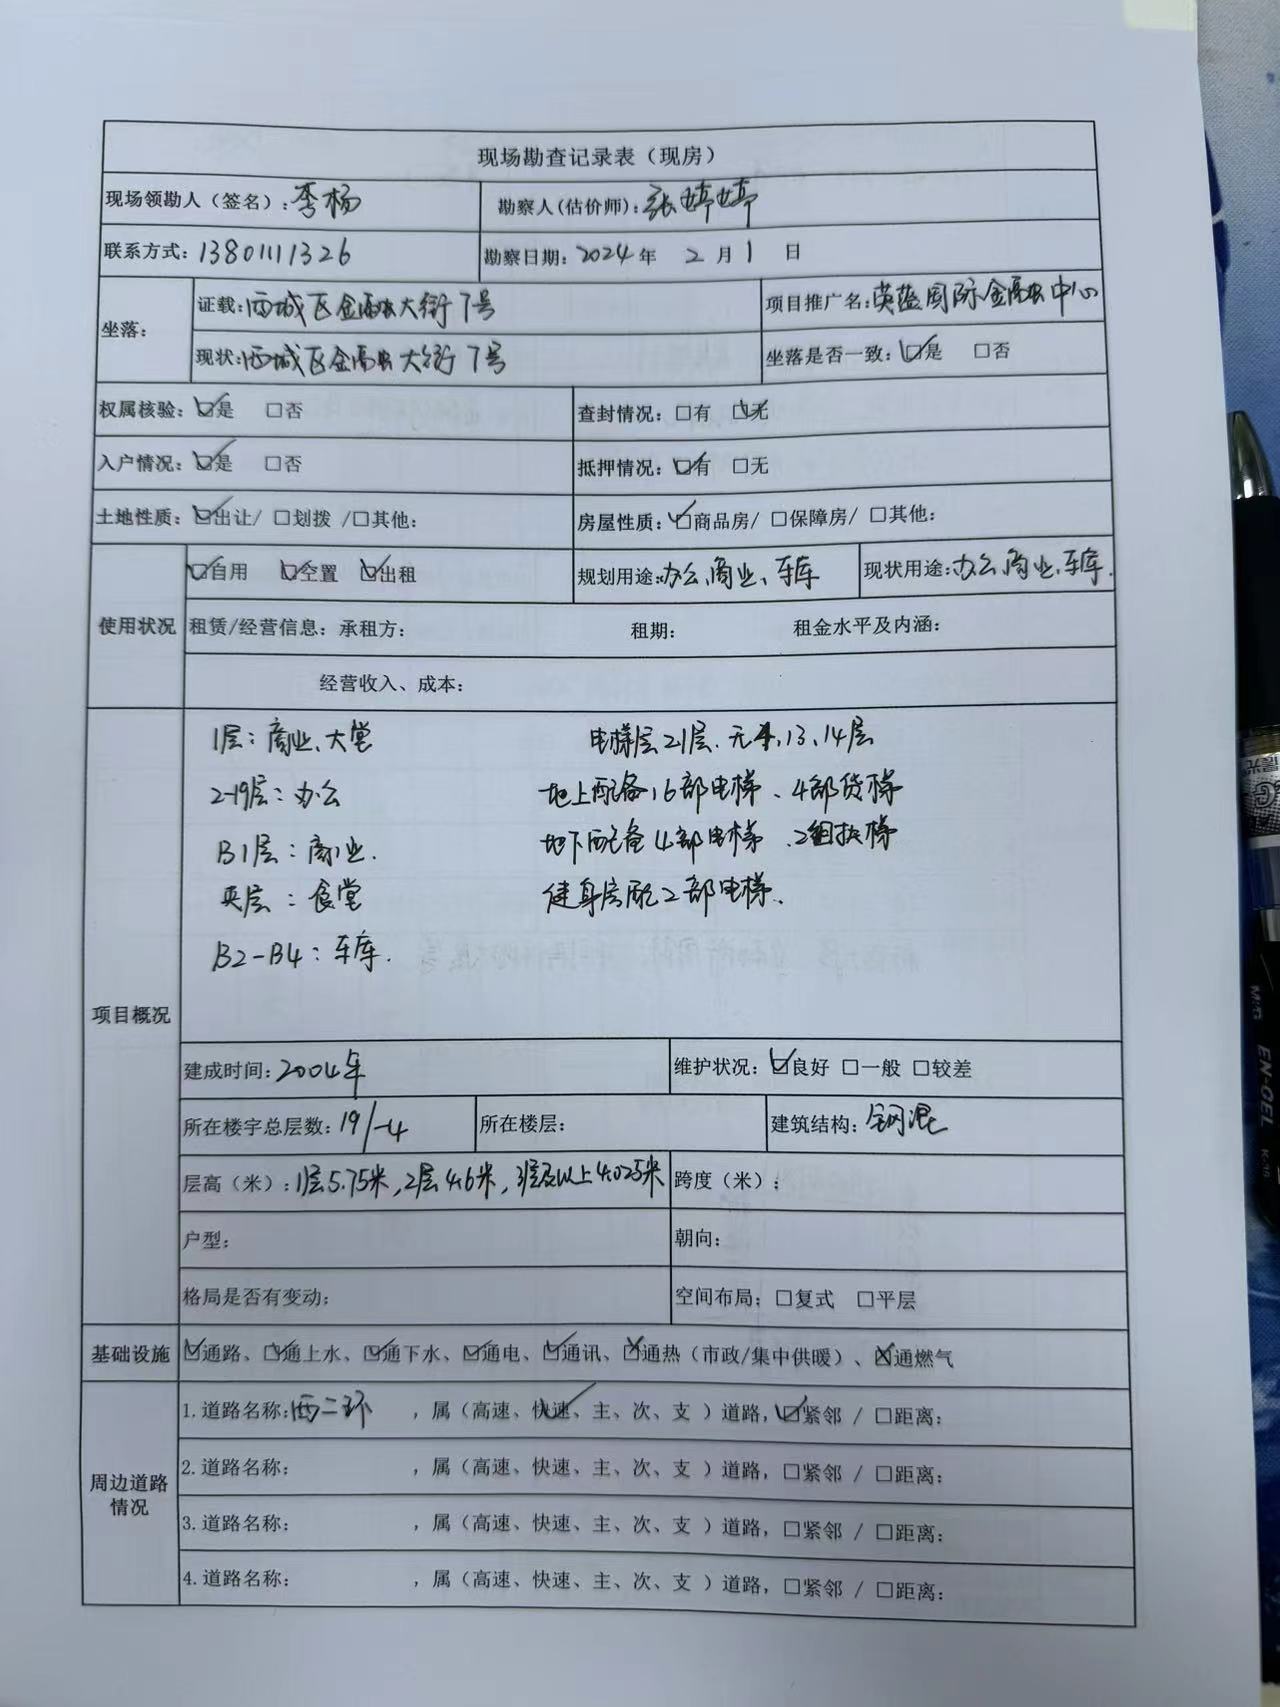 现场勘查记录表（现房）
现场领勘人（签名）：李杨 勘察人(估价师)：张婷婷
联系方式：13801111326 勘察日期：2024年 2月1日
坐落：
证载：西城区金融大街7号 项目推广名：英蓝国际金融中心
现状：西城区金融大街7号 坐落是否一致：☑是 □否
权属核验：☑是 □否 查封情况：□有 ☑无
入户情况：☑是 □否 抵押情况：☑有 □无
土地性质：☑出让/ □划拨 /□其他： 房屋性质：☑商品房/ □保障房/ □其他：
使用状况
☑自用 ☑空置 ☑出租 规划用途：办公、商业、车库 现状用途：办公、商业、车库.
租赁/经营信息：承租方： 租期： 租金水平及内涵：
经营收入、成本：
项目概况
1层：商业、大堂 电梯层21层.无4,13、14层
2-19层：办公 地上配备16部电梯、4部货梯
B1层：商业. 地下配备4部电梯、2组扶梯
夹层：食堂 健身房配2部电梯.
B2-B4：车库.
建成时间：2004年 维护状况：☑良好 □一般 □较差
所在楼宇总层数：19/-4 所在楼层： 建筑结构：钢混
层高（米）：1层5.75米，2层4.6米，3层及以上4.025米 跨度（米）：
户型： 朝向：
格局是否有变动： 空间布局：□复式 □平层
基础设施 ☑通路、☑通上水、☑通下水、☑通电、☑通讯、☒通热（市政/集中供暖）、☒通燃气
周边道路情况
1.道路名称：西二环 ，属（高速、快速✓、主、次、支 ）道路，☑紧邻 / □距离：
2.道路名称： ，属（高速、快速、主、次、支 ）道路，□紧邻 / □距离：
3.道路名称： ，属（高速、快速、主、次、支 ）道路，□紧邻 / □距离：
4.道路名称： ，属（高速、快速、主、次、支 ）道路，□紧邻 / □距离：
EN-GEL